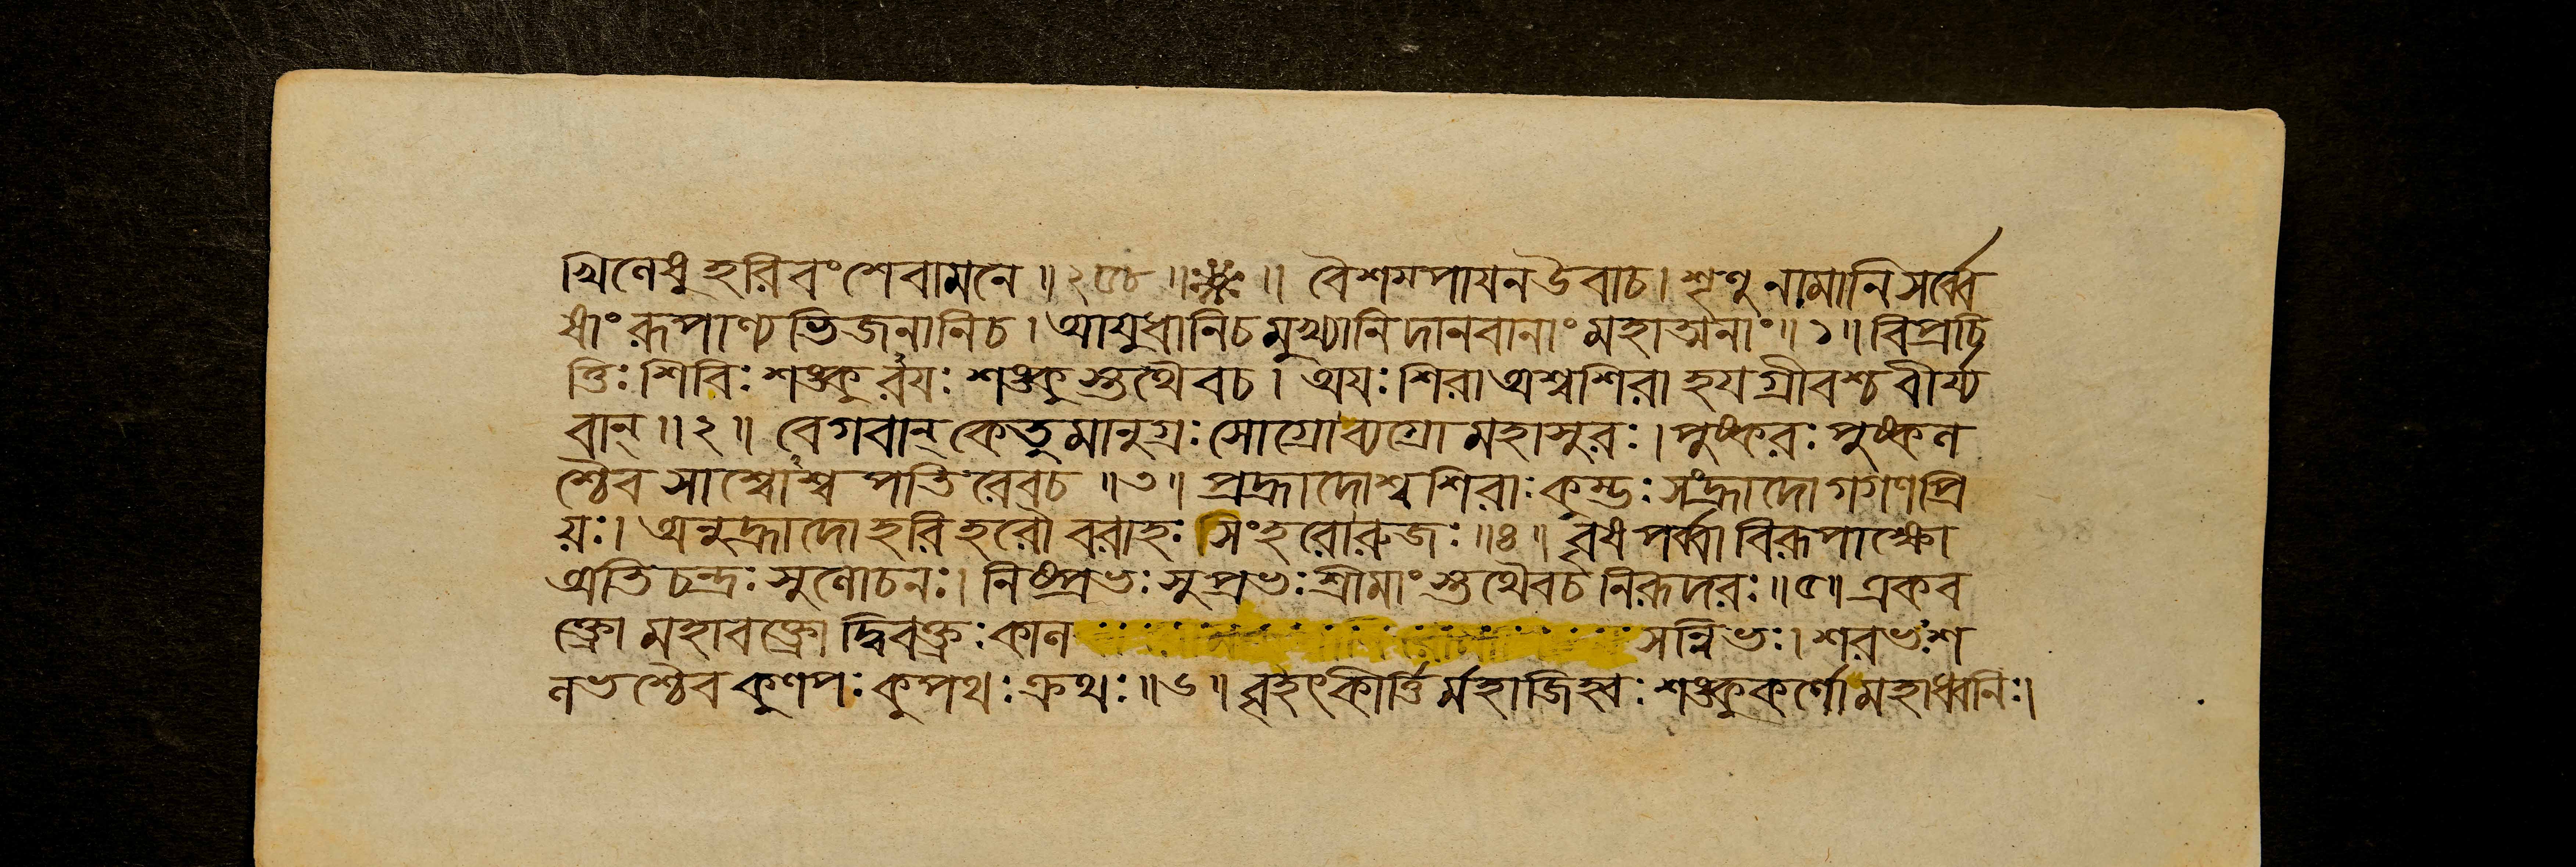 খিলেষু হরিবংশে বামনে ॥ ২৫৮ ॥ ॥ বৈশম্পায়ন উবাচ। শৃণু নামানি সর্ব্বে
ষাং রূপাণ্য ভিজনানিচ। আয়ুধানিচ মুখ্যানি দানবানাং মহাত্মনাং॥১॥ বিপ্রচি
ত্তিঃ শিবিঃ শঙ্কু রয়ঃ শঙ্কু স্তথৈবচ। অয়ঃ শিরা অশ্বশিরা হয়গ্রীবশ্চ বীর্য্য
বান্॥২॥ বেগবান্ কেতুমানুগ্রঃ সোগ্রোব্যগ্রো মহাসুরঃ। পুষ্করঃ পুষ্কল
শ্চৈব সাশ্বোশ্ব পতি রেবচ ॥৩॥ প্রহ্লাদোশ্বশিরাঃ কুম্ভঃ সংহ্লাদো গগণপ্রি
য়ঃ। অনুহ্লাদো হরি হরৌ বরাহঃ সিংহরোরুজঃ॥৪॥ বৃষপর্ব্বা বিরূপাক্ষো
অতি চন্দ্রঃ সুলোচনঃ। নিষ্প্রভঃ সুপ্রভঃ শ্রীমাং স্তথৈবচ নিরূদরঃ॥৫॥ একব
ক্ত্রো মহাবক্ত্রো দ্বিবক্ত্রঃ কাল সন্নিভঃ। শরভঃ শ
লভ শ্চৈব কুণপঃ কুপথঃ ক্রথঃ॥৬॥ বৃহৎকীর্ত্তি র্মহাজিহ্বঃ শঙ্কুকর্ণো মহাধ্বনিঃ।